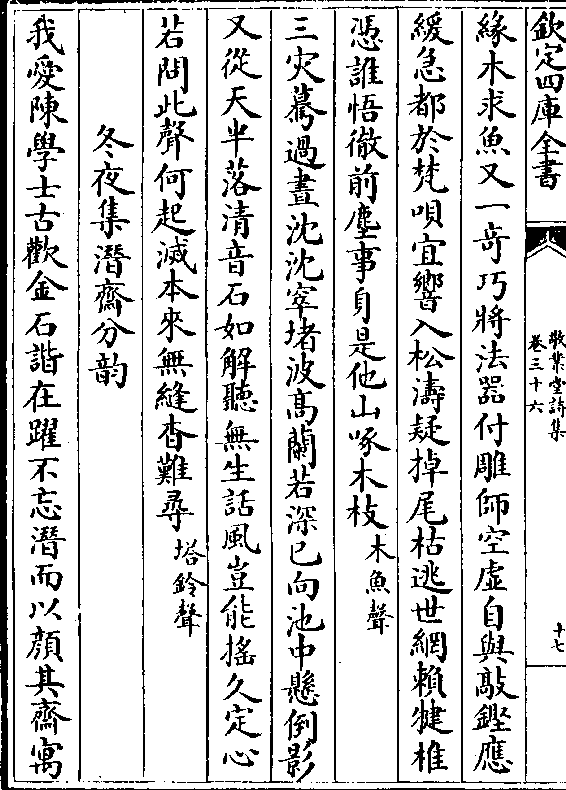 欽定四庫全書
敬業堂詩集
卷三十六
十七
緣木求魚又一奇巧將法器付雕師空虛自與敲鏗應
緩急都於梵唄宜響入松濤疑掉尾枯逃世網賴揵椎
憑誰悟徹前塵事身是他山啄木枝木魚聲
三灾驀過晝沈沈窣堵波高蘭若深已向池中懸倒影
又從天半落清音石如解聽無生話風豈能搖久定心
若問此聲何起滅本來無縫杳難尋塔鈴聲
冬夜集潛齋分韵
我愛陳學士古歡金石諧在躍不忘潛而以顔其齋寓